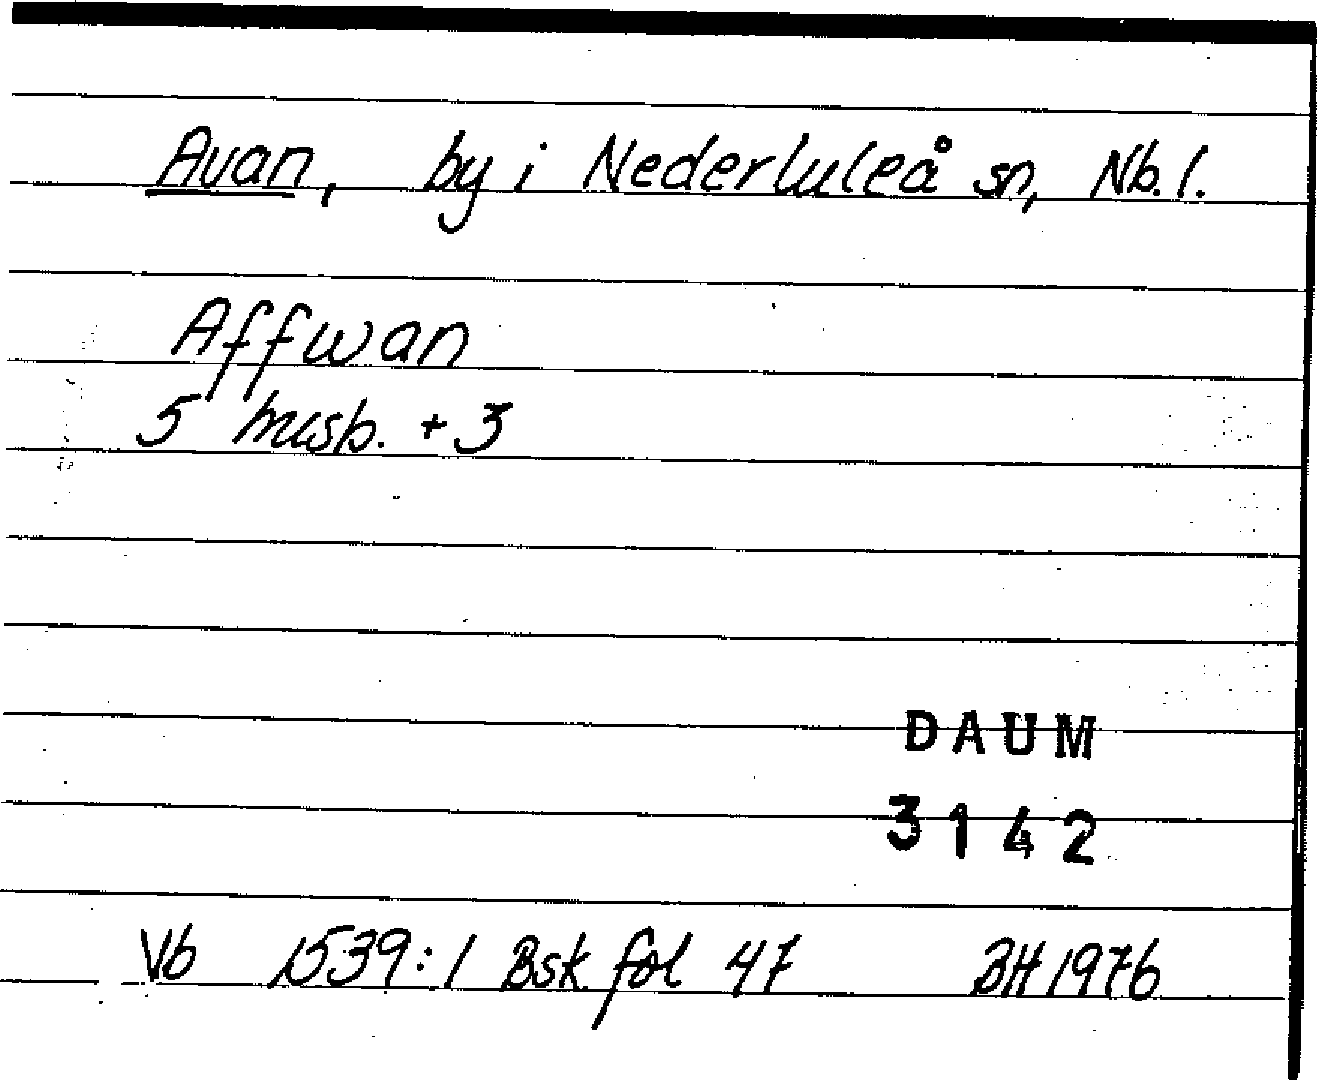 Avan, by i Nederluleå sn, Nb. l.
Affwan
5 husb. + 3
DAUM
3142
Vb 1539:1 Bsk fol 47 BH 1976